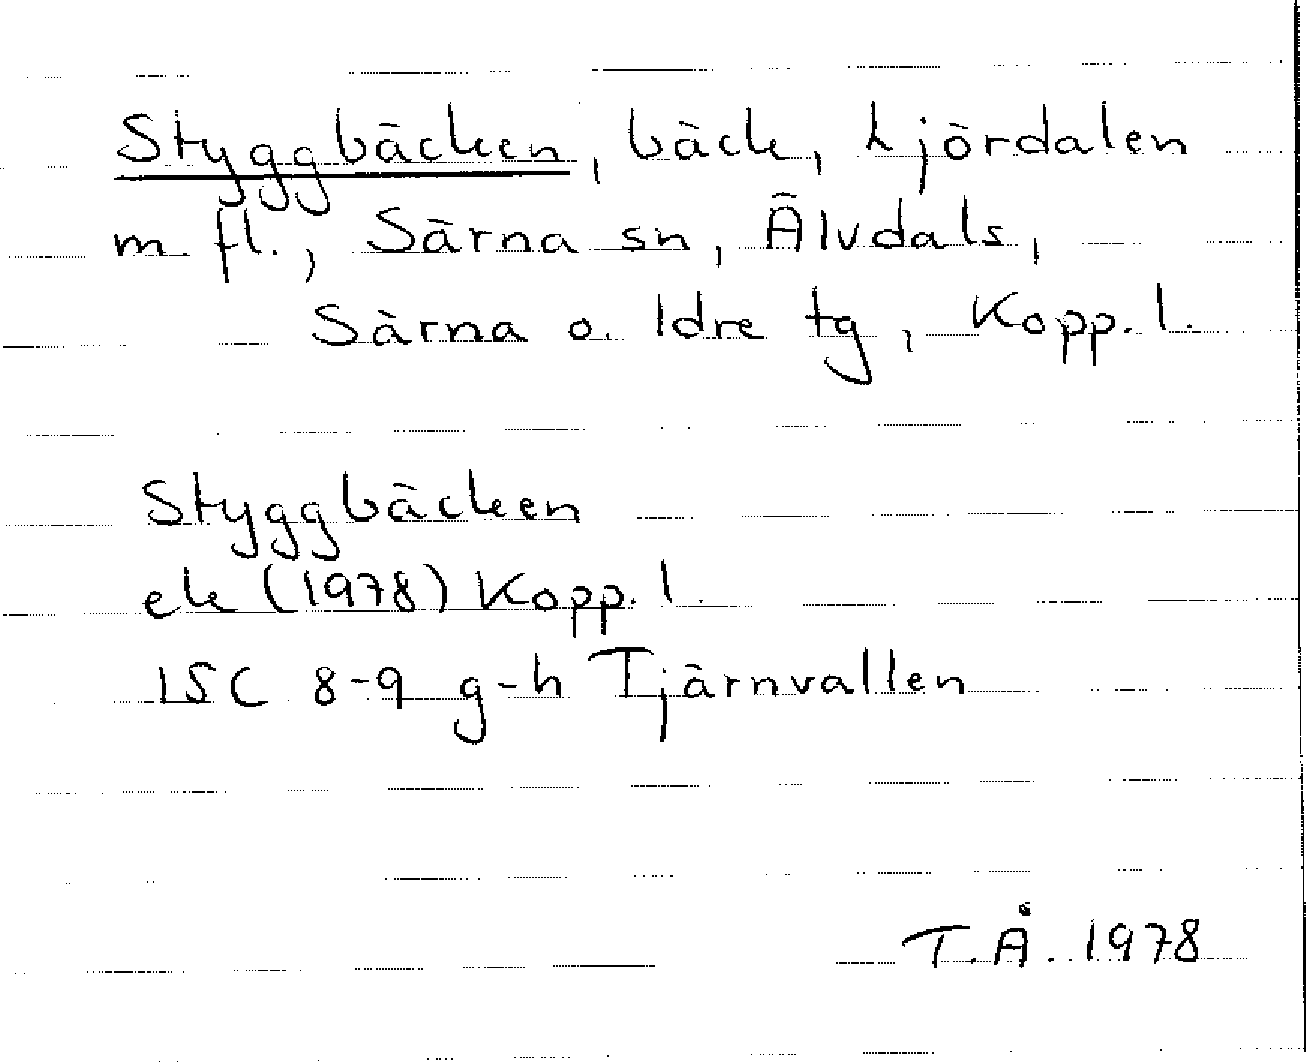 Styggbäcken, bäck, Ljördalen
m. fl., Särna sn, Älvdals,
Särna o. Idre tg, Kopp. l.
Styggbäcken
ek (1978) Kopp. l.
15C 8-9 g-h Tjärnvallen
T.Å. 1978